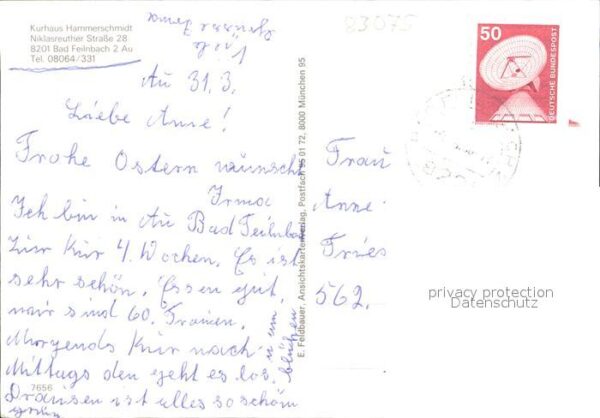 Kurhaus Hammerschmidt
Niklasreuther Straße 28
8201 Bad Feilnbach 2 Au
Tel. 08064/331
83075
Au 31.3.
Liebe Anne!
Frohe Ostern wünscht
Irma
Ich bin in Au Bad Feilnba
Zur Kur 4. Wochen. Es ist
sehr schön. Essen gut,
wir sind 60. Frauen.
Morgends Kur nach
Mittags den geht es los.
Drausen ist alles so schöm
grün
u um
blühen
viele
Grüsse Irma
7656
E. Feldbauer, Ansichtskartenverlag, Postfach 95 01 72, 8000 München 95
50
DEUTSCHE BUNDESPOST
Frau
Anne
Fries
562.
privacy protection
Datenschutz